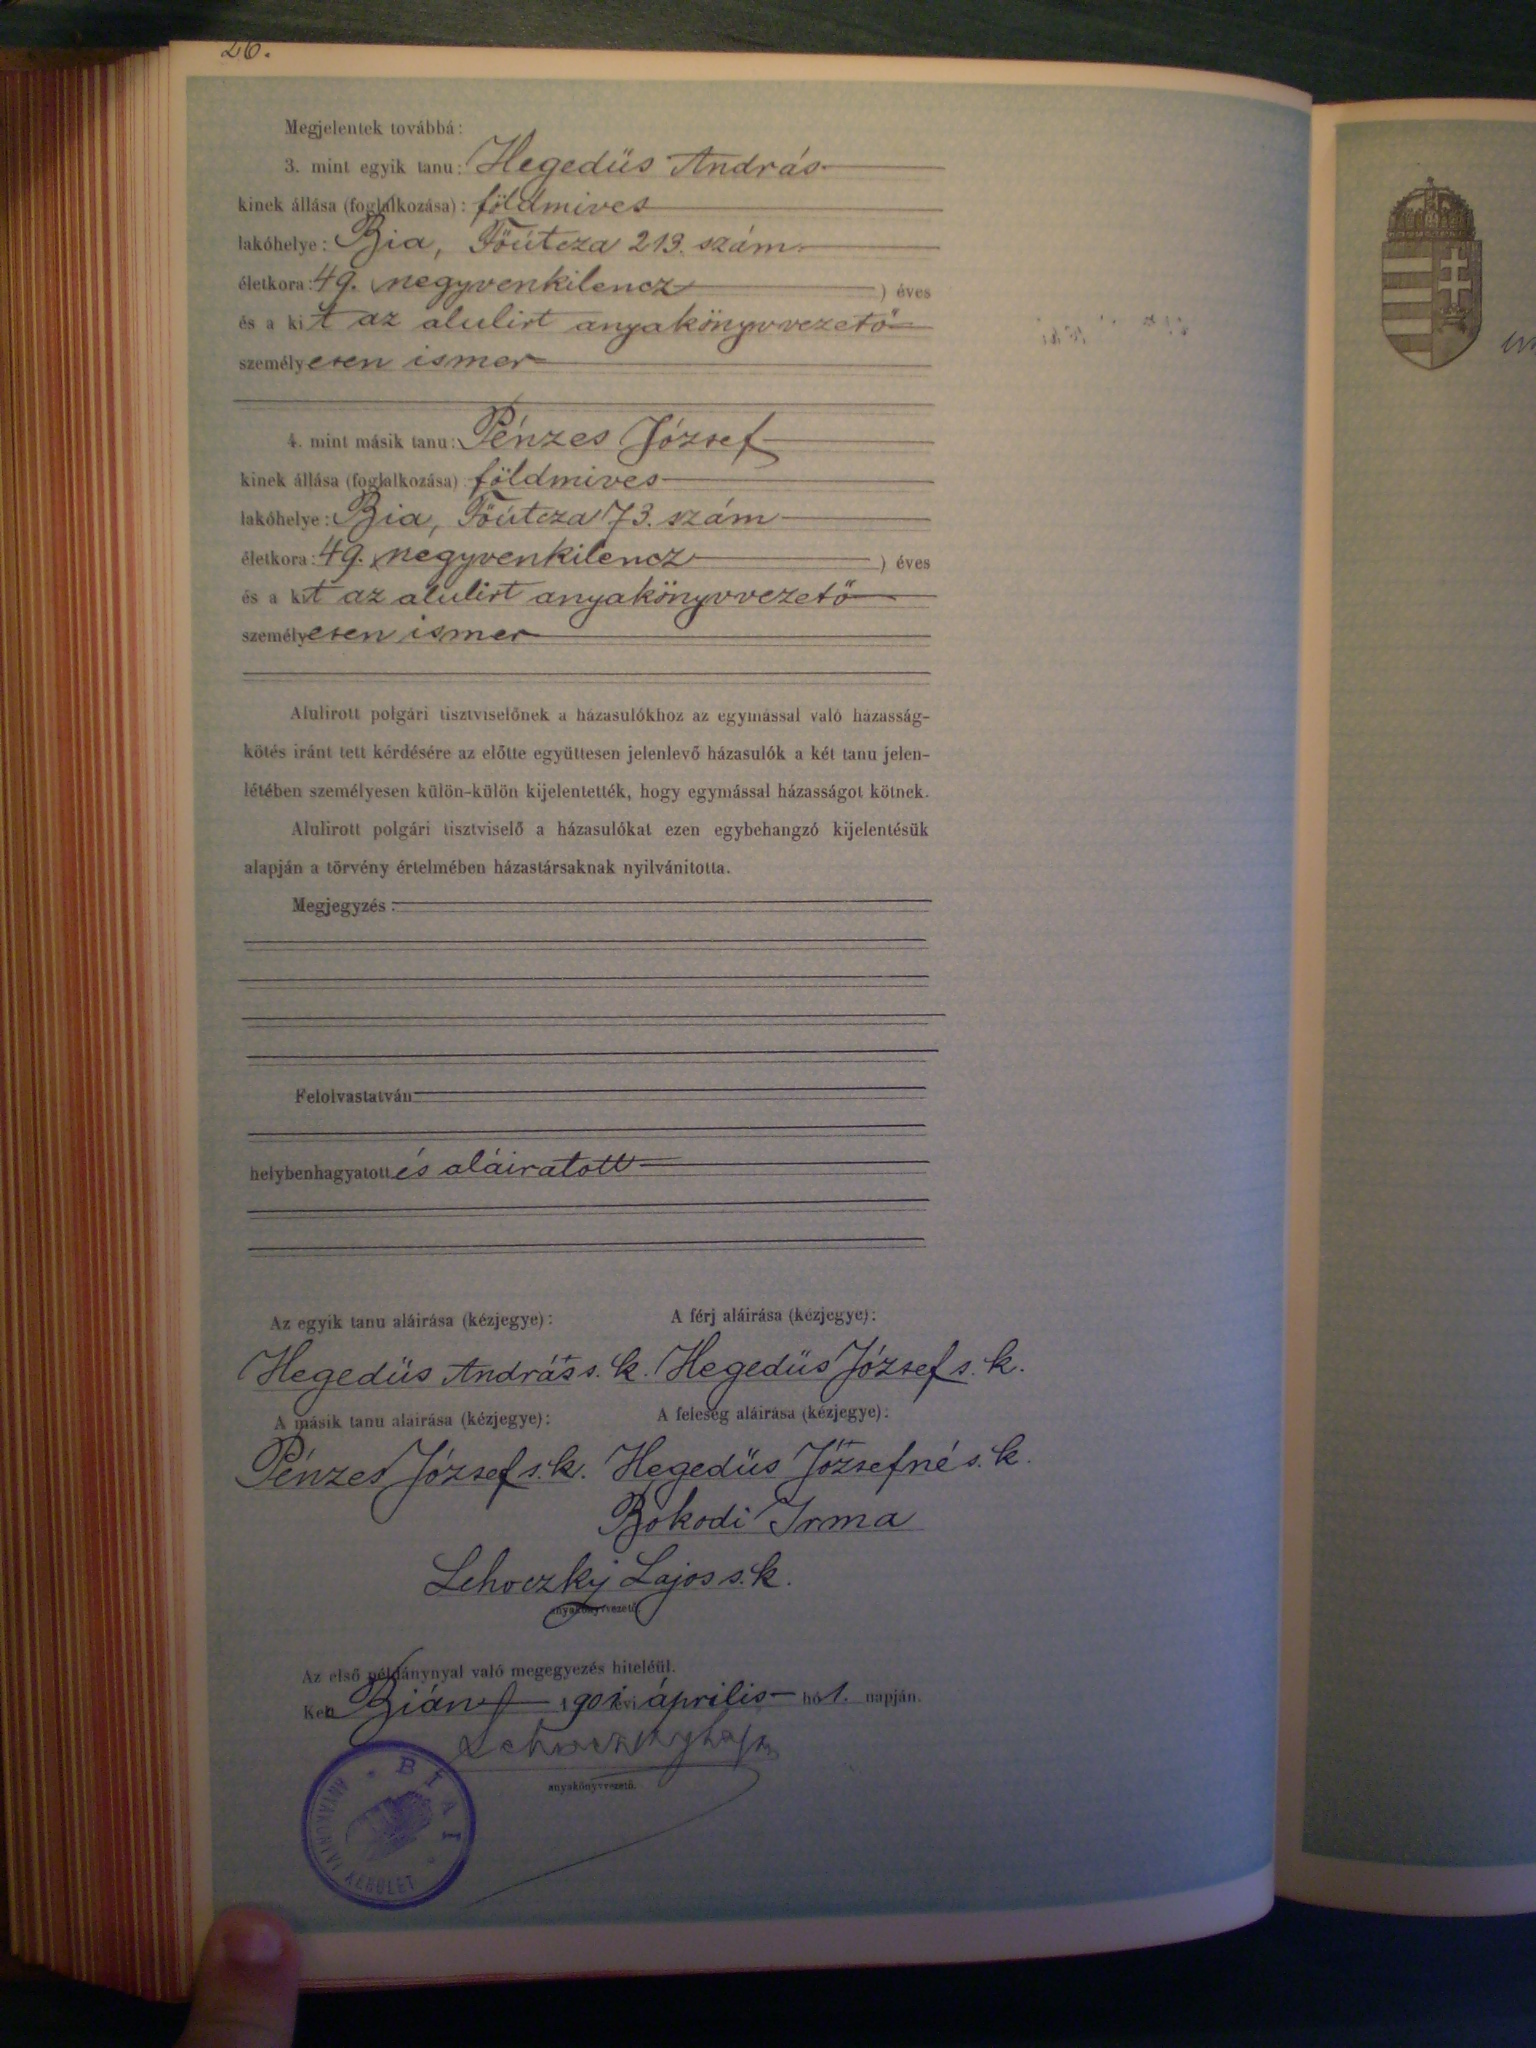 26.
Megjelentek továbbá:
3. mint egyik tanu: Hegedüs András
kinek állása (foglalkozása): földmives
lakóhelye: Bia, Főútcza 219. szám.
életkora: 49. negyvenkilencz ) éves
és a kit az alulirt anyakönyvvezető
személyesen ismer
4. mint másik tanu: Pénzes József
kinek állása (foglalkozása) földmives
lakóhelye: Bia, Főútcza 73. szám
életkora: 49. negyvenkilencz ) éves
és a kit az alulirt anyakönyvvezető
személyesen ismer
Alulirott polgári tisztviselőnek a házasulókhoz az egymással való házasság-
kötés iránt tett kérdésére az előtte együttesen jelenlevő házasulók a két tanu jelen-
létében személyesen külön-külön kijelentették, hogy egymással házasságot kötnek.
Alulirott polgári tisztviselő a házasulókat ezen egybehangzó kijelentésük
alapján a törvény értelmében házastársaknak nyilvánitotta.
Megjegyzés:
Felolvastatván
helybenhagyatott és aláiratott
Az egyik tanu aláirása (kézjegye): A férj aláirása (kézjegye):
Hegedüs András s. k. Hegedüs József s. k.
A másik tanu aláirása (kézjegye): A feleség aláirása (kézjegye):
Pénzes József s. k. Hegedüs Józsefné s. k.
Bokodi Irma
Lehoczky Lajos s. k.
anyakönyvvezető.
Az első példánynyal való megegyezés hiteléül.
Kelt Bián 1901 évi április hó 1. napján.
Lehoczky Lajos
anyakönyvvezető.
BIAI
ANYAKÖNYVI KERÜLET